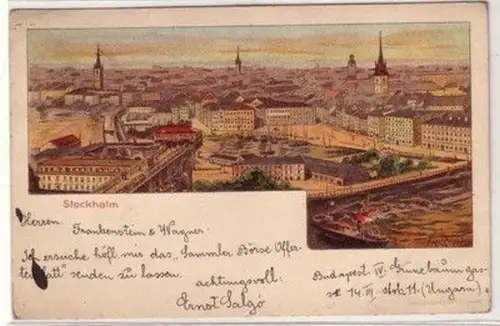 Stockholm
Herren
Frankenstein & Wagner:
Ich ersuche höfl. mir das "Sammler Börse Offer-
tenblatt" senden zu lassen.
achtungsvoll:
Ernst Salgó
Budapest IV. Grünebaum gas-
se 14. III Stok 11. (Ungarn)